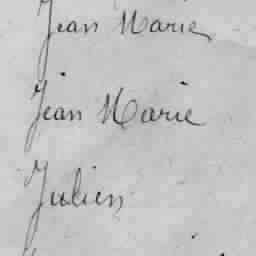 Jean Marie
Jean Marie
Julien